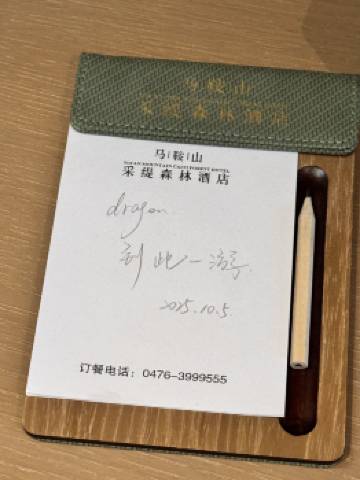 马鞍山
采缇森林酒店
马鞍山
采缇森林酒店
dragon
到此一游
2025.10.5.
订餐电话：0476-3999555